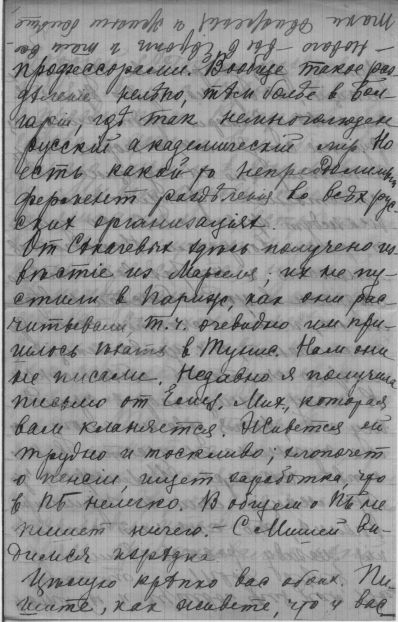 профессорами. Вообще такое раз
дѣленіе нелѣпо, тѣмъ болѣе в Бол
гаріи, гдѣ так немноголюден
русскій академическій мір. Но
есть какой то непреодолимый
фермент раздѣленія во всѣх рус
ских организаціях.
От Сикачевых здѣсь получено из
вѣстіе из Марселя; их не пу
стили в Париж, как они рас
читывали, т.ч. очевидно им при
шлось ѣхать в Тунис. Нам они
не писали. Недавно я получила
письмо от Мих., которая
вам кланяется. Живется ей
трудно и тоскливо; хлопочет
о пенсіи, ищет заработка, что
в ПБ нелегко. В общем о ПБ не
пишет ничего. – С Мишей ви
димся изрѣдка.
Цѣлую крѣпко вас обоих. Пи
шите, как живете, что у вас